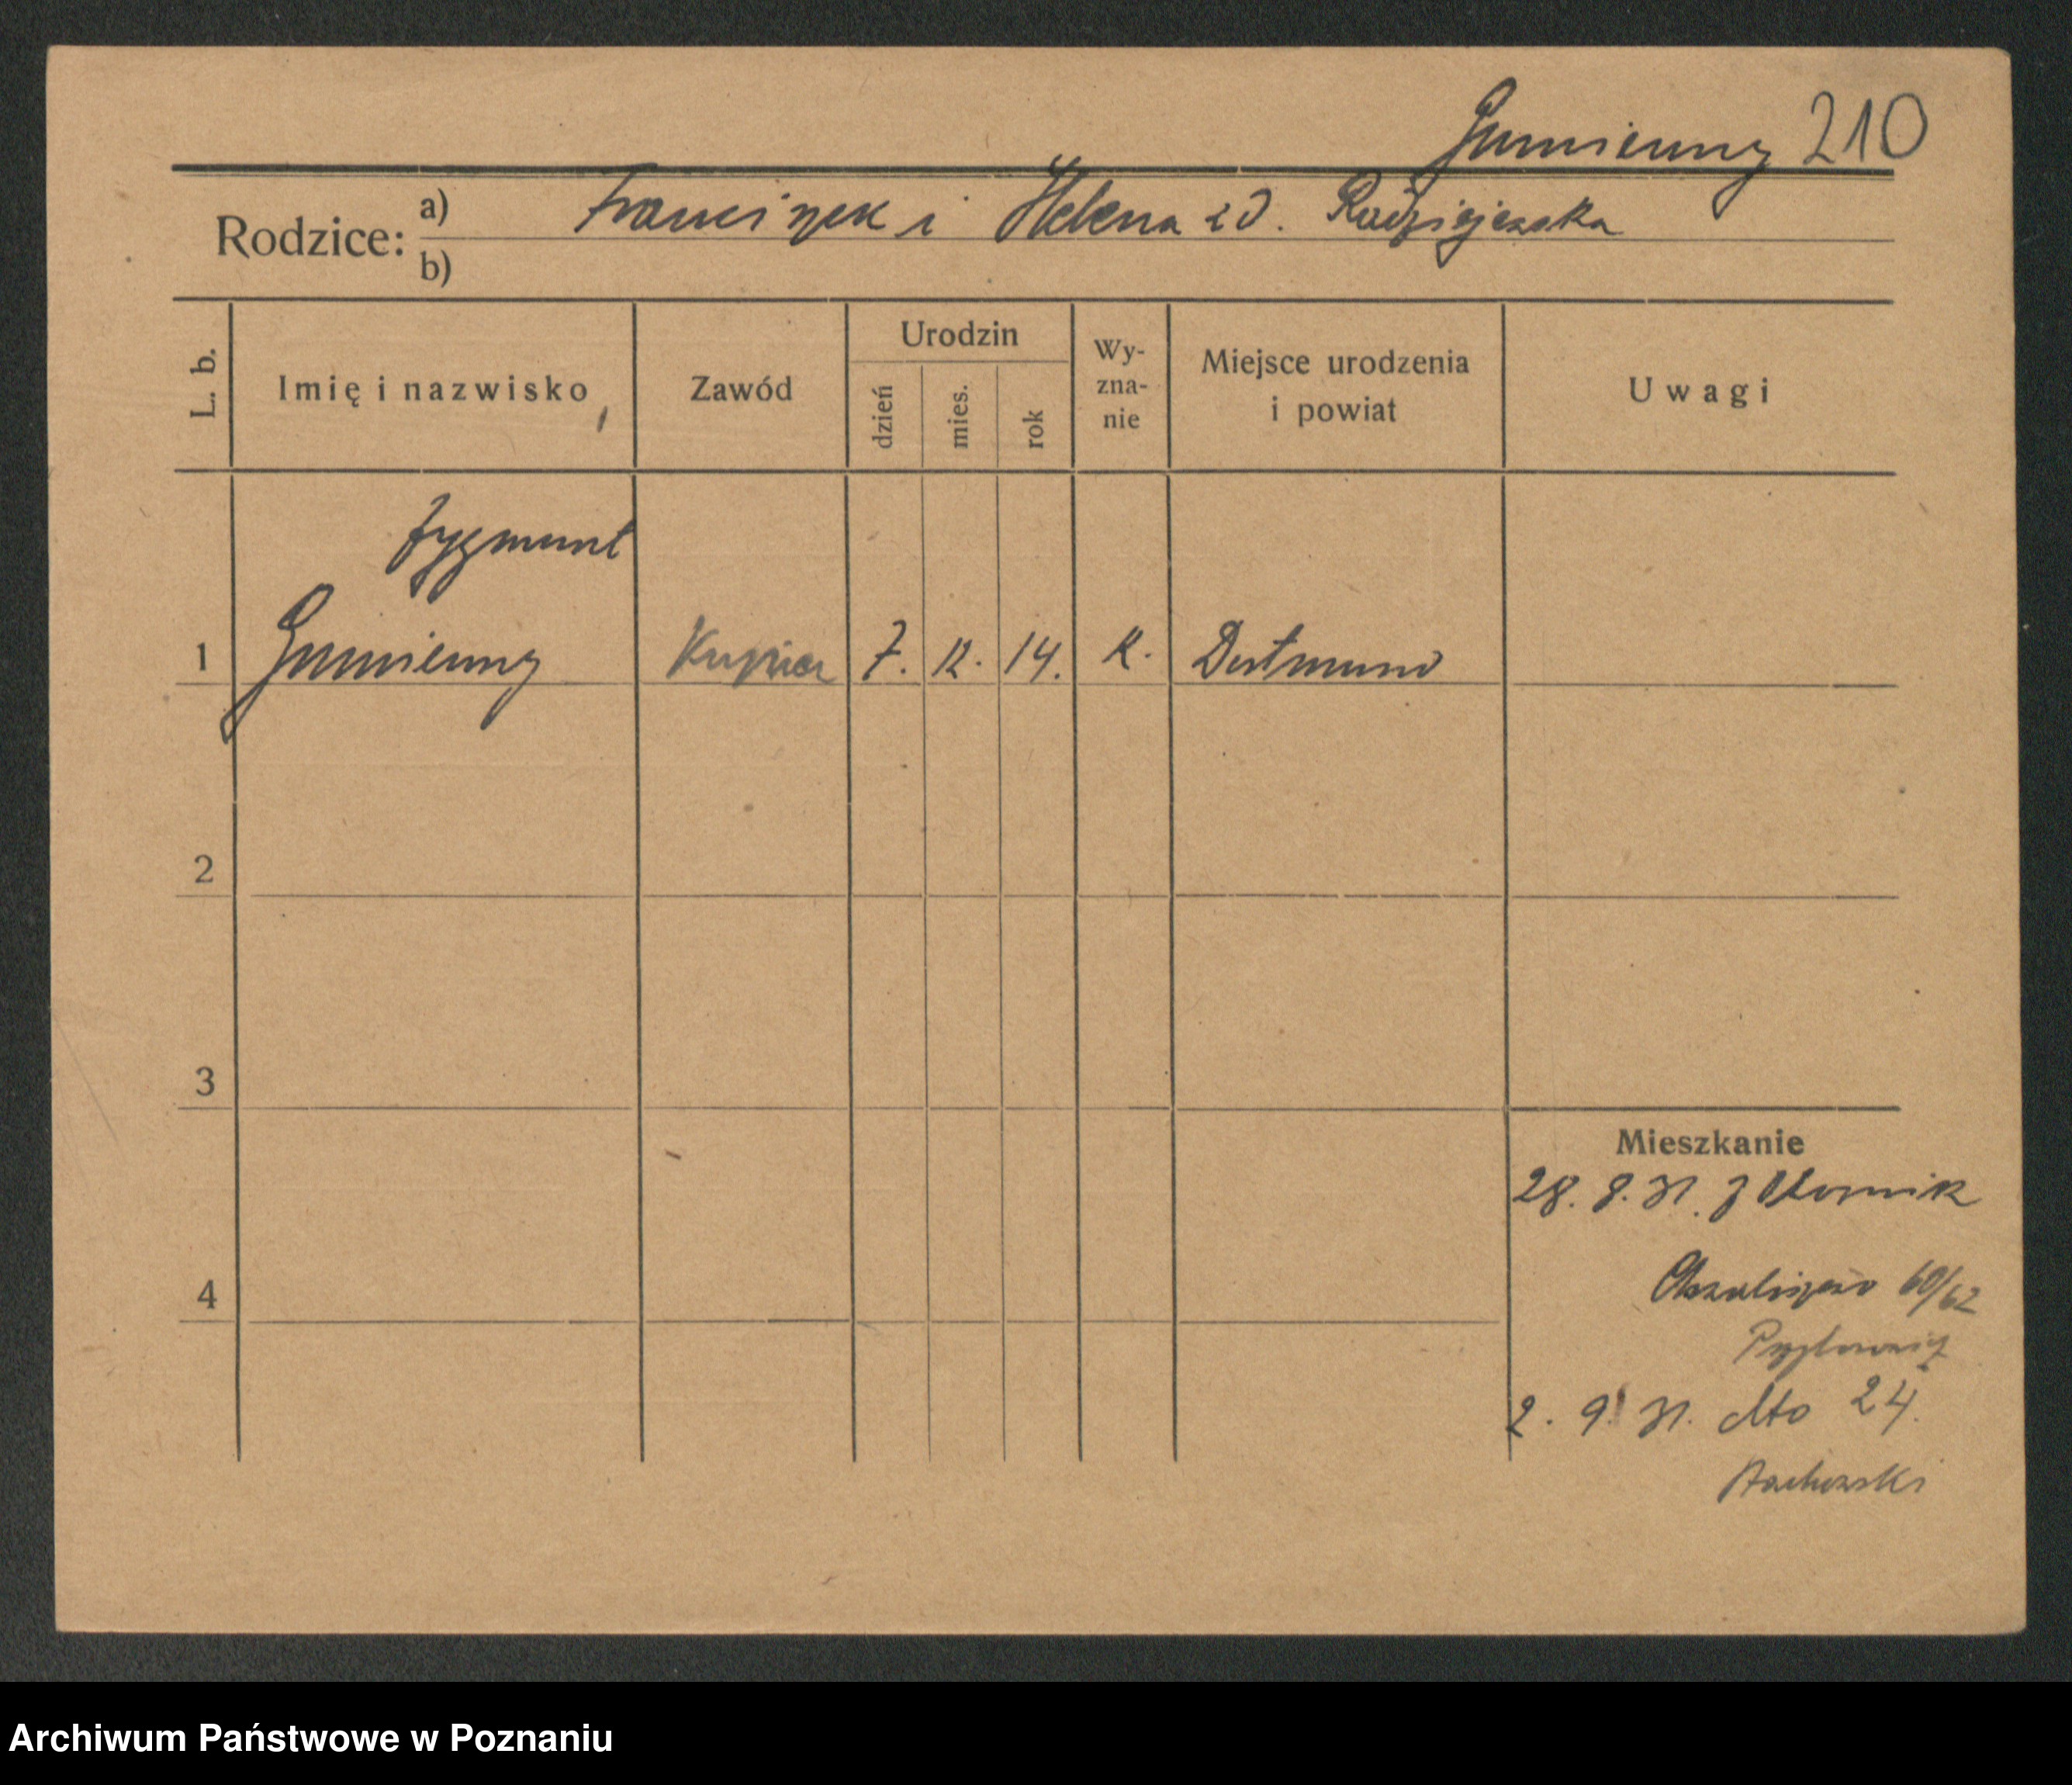 Gumienny 210
Rodzice: a) Franciszek i Helena zd. Radziejewska
b)
L. b. Imię i nazwisko Zawód Urodzin dzień mies. rok Wy-zna-nie Miejsce urodzenia i powiat Uwagi
Zygmunt
1 Gumienny Kupiec 7. 12. 14. K. Dortmund
2
3
Mieszkanie
28. 8. 31. z Kórnik
4
60/62
2. 9. 31. dto 24.
Stachowski
Archiwum Państwowe w Poznaniu